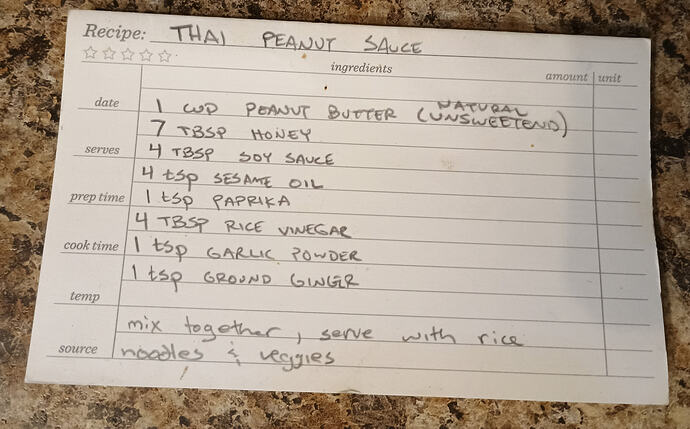 Recipe: THAI PEANUT SAUCE
ingredients amount unit
date
1 CUP PEANUT BUTTER (NATURAL UNSWEETEND)
7 TBSP HONEY
serves
4 TBSP SOY SAUCE
4 tsp SESAME OIL
prep time
1 tsp PAPRIKA
4 TBSP RICE VINEGAR
cook time
1 tsp GARLIC POWDER
1 tsp GROUND GINGER
temp
mix together, serve with rice
source
noodles & veggies